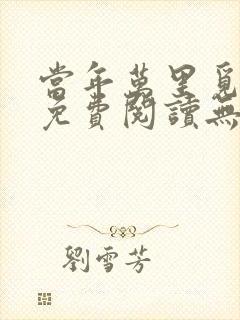 當年萬里覓
免費閱讀無
劉雪芳